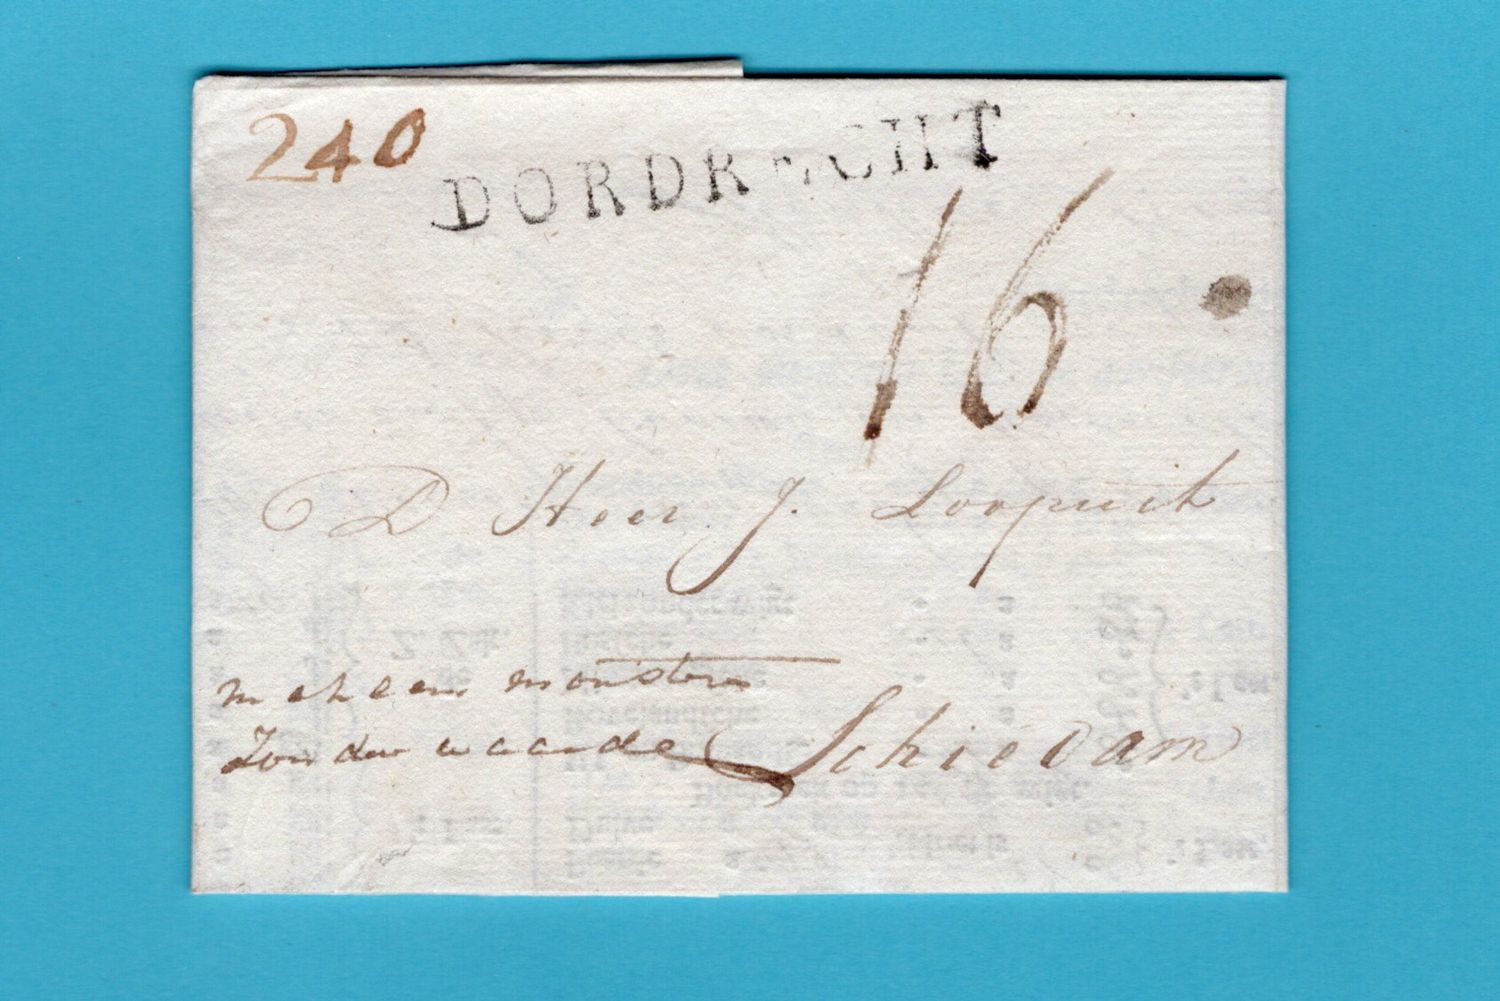 240
DORDRECHT
16
D Heer J. Loopuit
met een monster
Zonder waarde
Schiedam